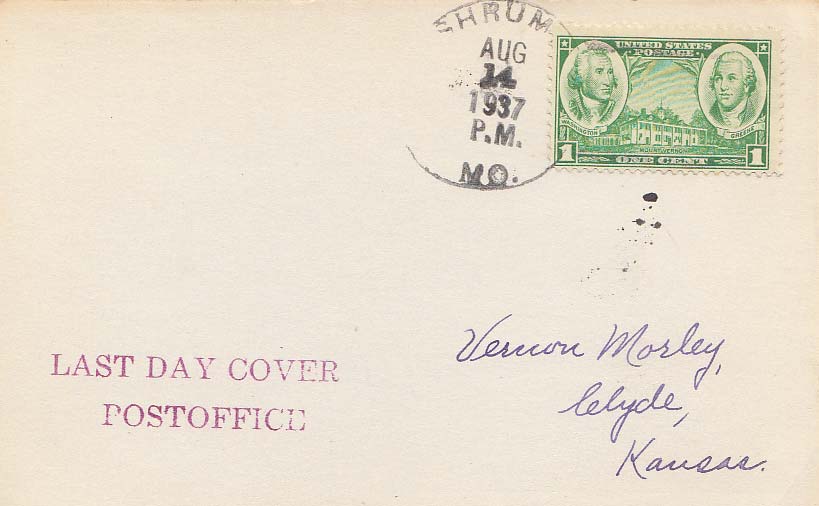 SHRUM
AUG
14
1937
P.M.
MO.
UNITED STATES
POSTAGE
WASHINGTON
GREENE
MOUNT VERNON
1 ONE CENT 1
LAST DAY COVER
POSTOFFICE
Vernon Morley,
Clyde,
Kansas.